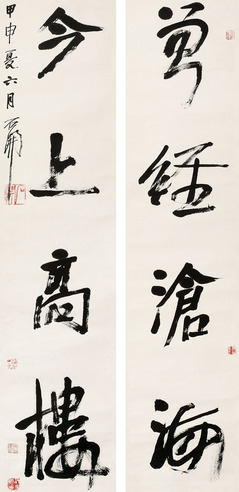 曾經滄海
今上高樓
甲申夏六月